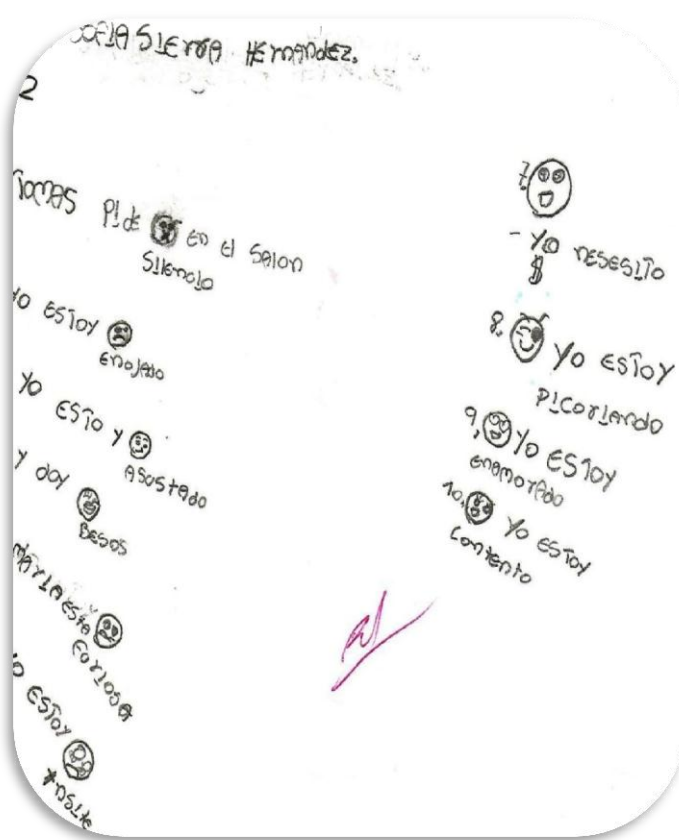 SIERRA HERNANDEZ.
2
TOMAS Pide en el salon
Silencio
yo ESTOY
ENOJADO
yo ESTOY
ASUSTADO
y doy
BESOS
MARIA ESTA
CURIOSA
yo ESTOY
7.
- yo NESESITO
$
8. yo ESTOY
PICORIANDO
9, yo ESTOY
ENAMORADO
10, yo ESTOY
Contento